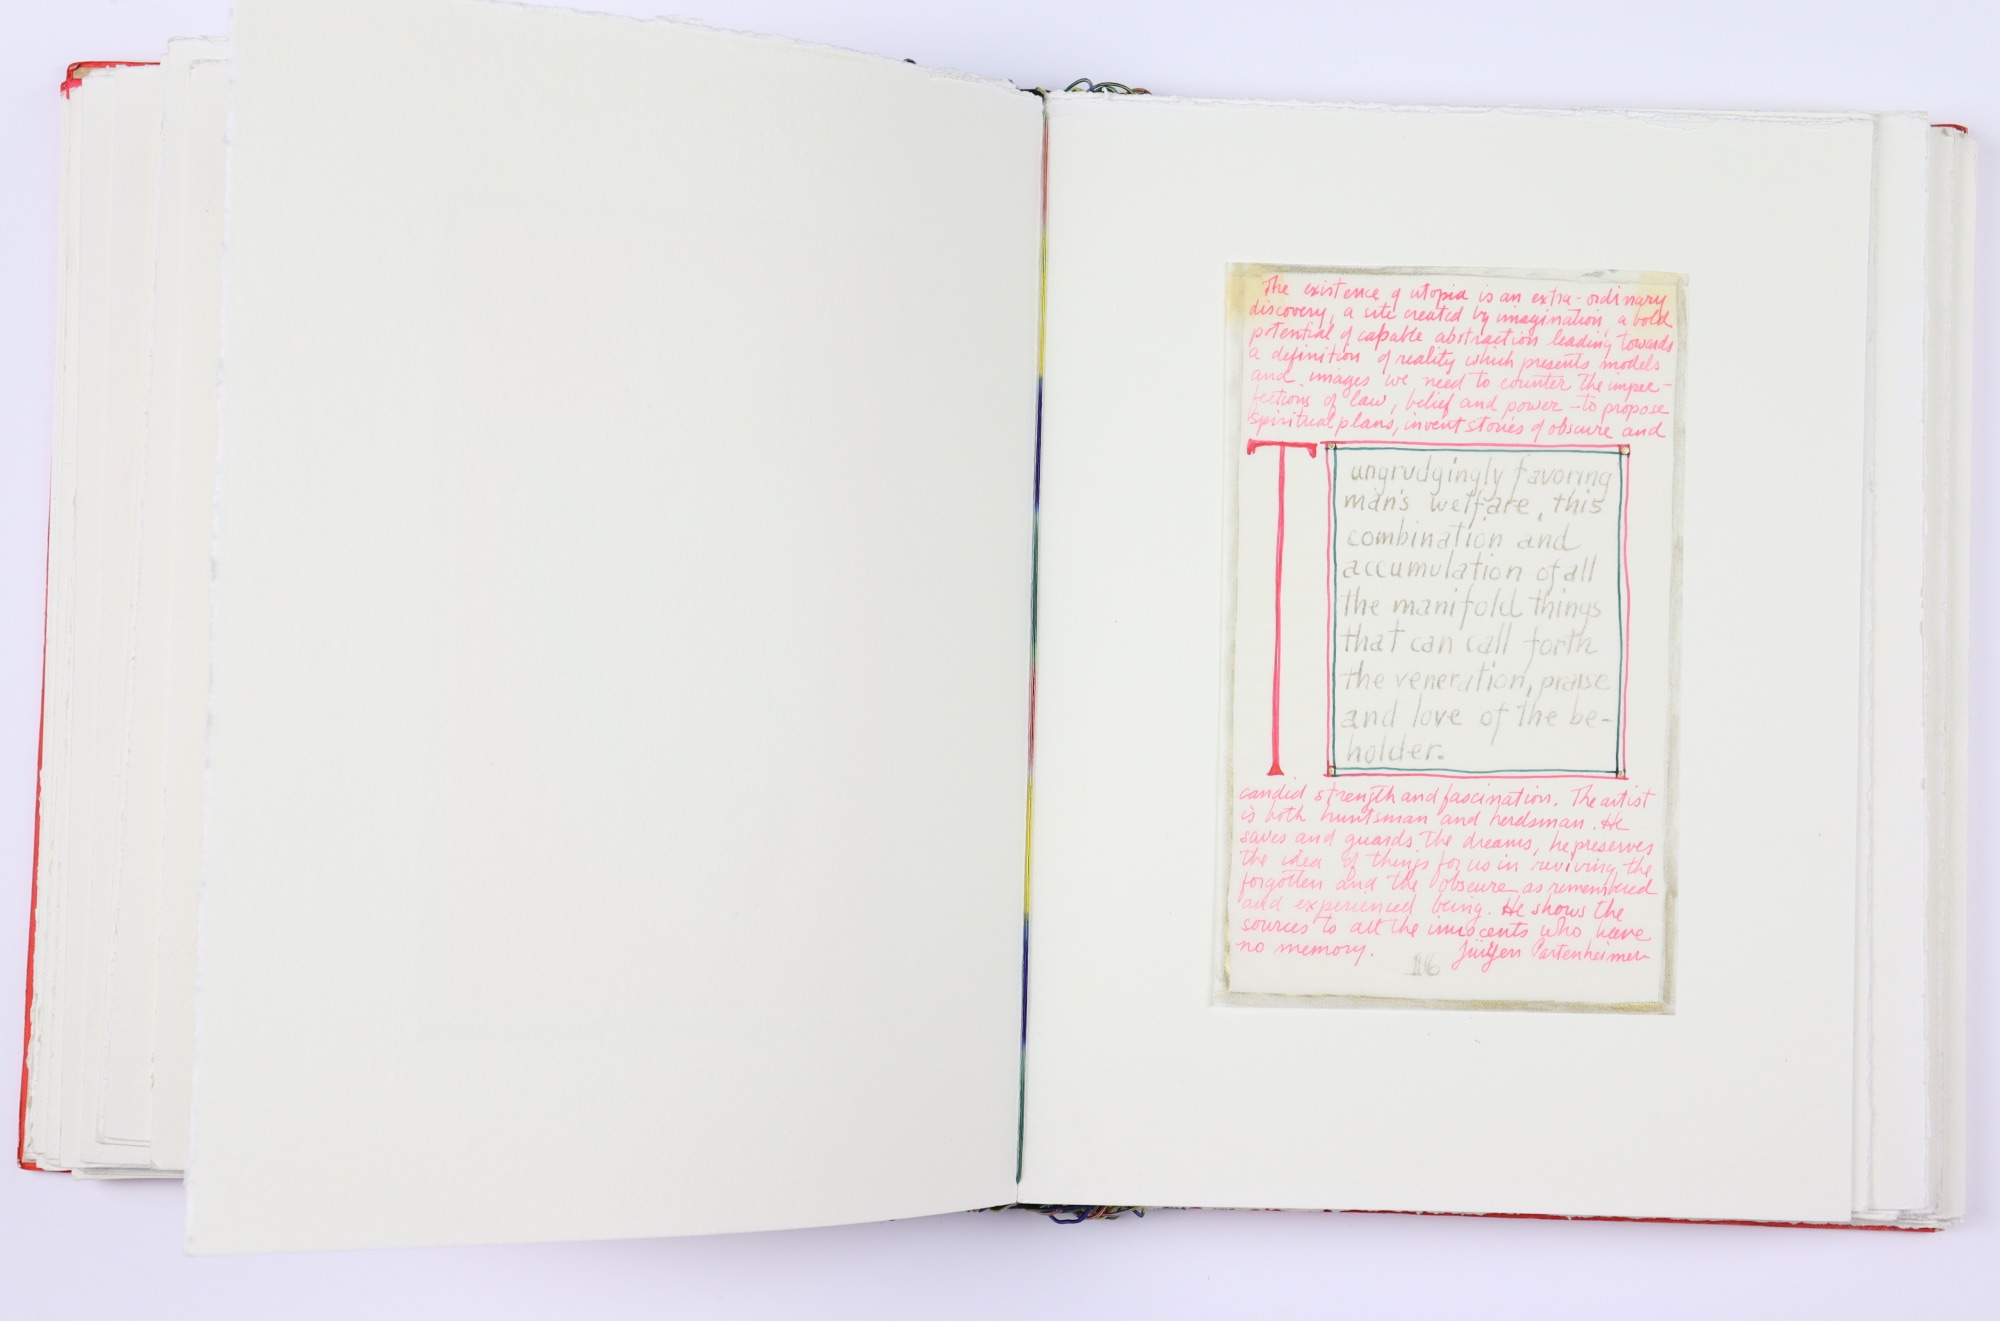 The existence of utopia is an extra-ordinary
discovery, a site created by imagination, a bold
potential of capable abstraction leading towards
a definition of reality which presents models
and images we need to counter the imper-
fections of law, belief and power - to propose
spiritual plans, invent stories of obscure and
T
ungrudgingly favoring
man's welfare, this
combination and
accumulation of all
the manifold things
that can call forth
the veneration, praise
and love of the be-
holder.
candid strength and fascination. The artist
is both huntsman and herdsman. He
saves and guards the dreams, he preserves
the idea of things for us in reviving the
forgotten and the obscure as remembered
and experienced being. He shows the
sources to all the innocents who have
no memory. Jürgen Partenheimer
116